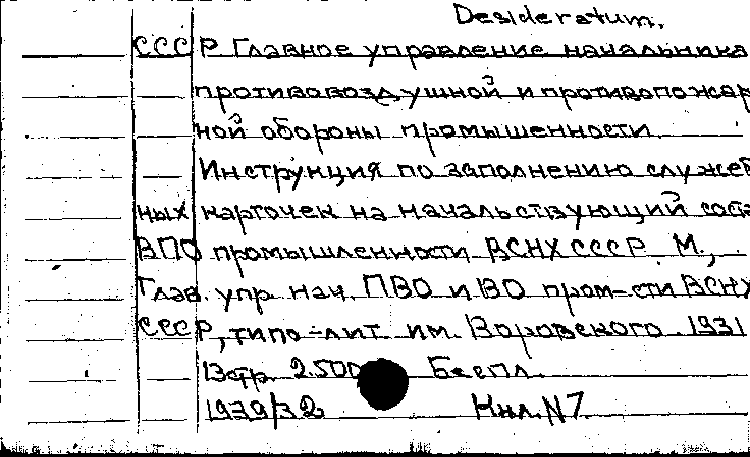 Desideratum.
СССР Главное управление начальника
противовоздушной и противопожар
ной обороны промышенности.
Инструкция по заполнению служеб
ных карточек на начальствующий сост
ВПО промышленности ВСНХ СССР. М.,
Глав. упр. нач. ПВО и ВО пром-сти ВСНХ
СССР, типо-лит. им. Воровского. 1931
13стр. 2.500 Беспл.
1939/32 Кнл. N7.